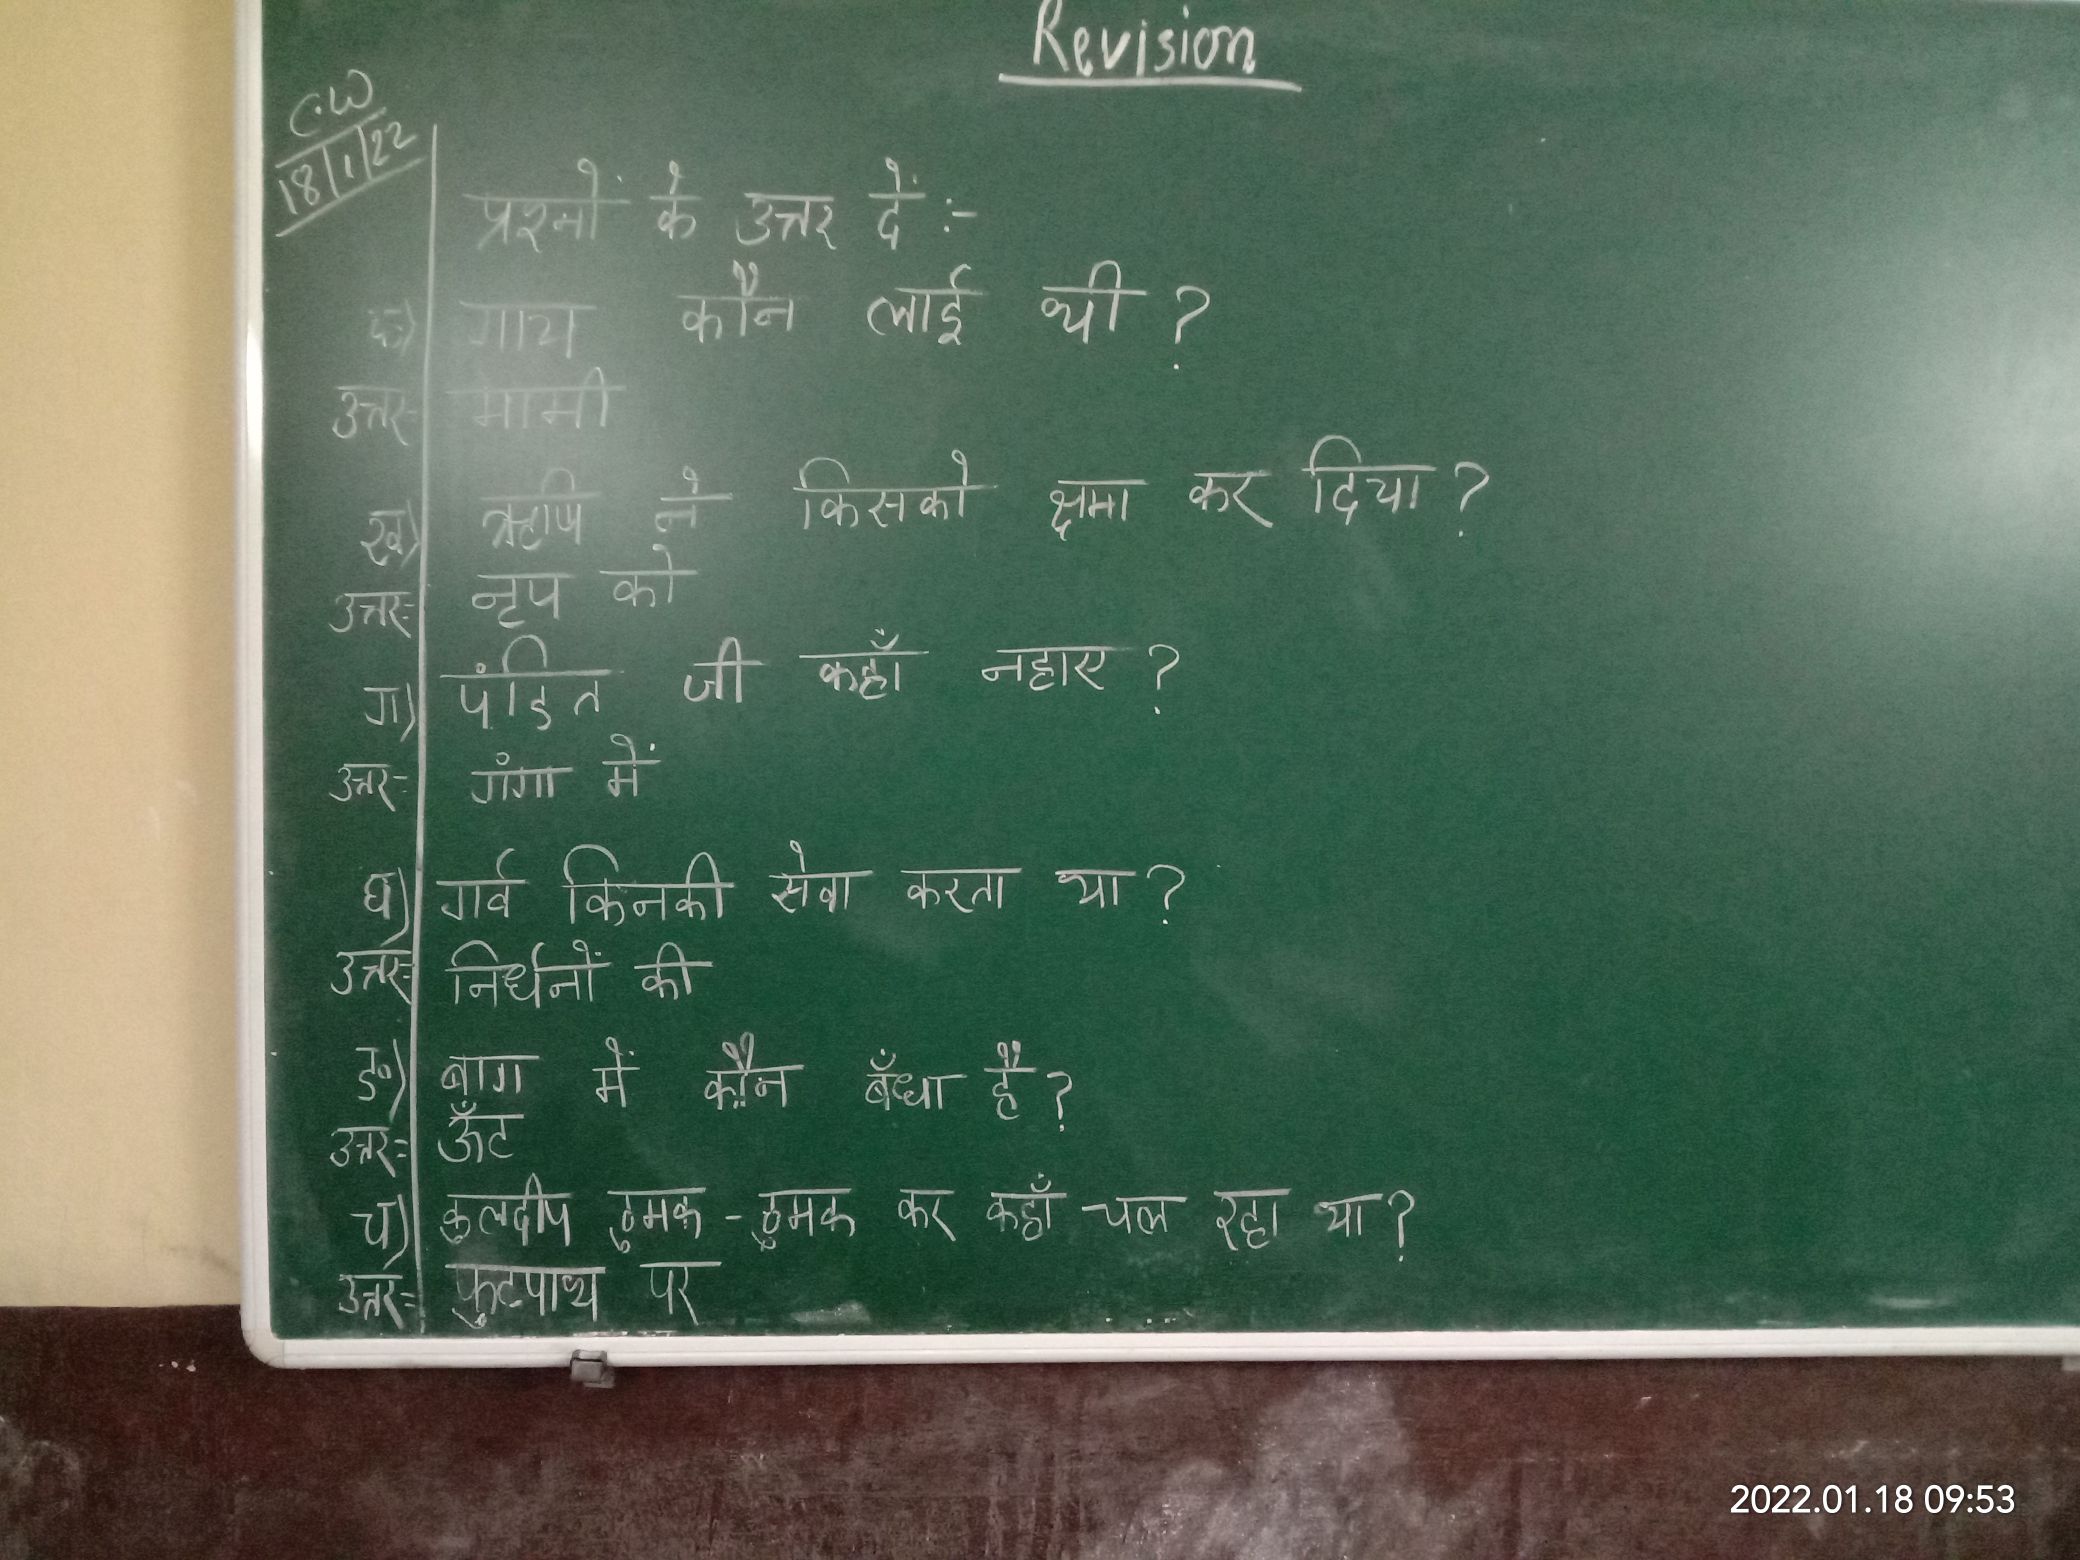 Revision
C.W
18/1/22
प्रश्नों के उत्तर दें :-
क) गाय कौन लाई थी ?
उत्तर- मामी
ख) ऋषि ने किसको क्षमा कर दिया ?
उत्तर:- नृप को
ग) पंडित जी कहाँ नहाए ?
उत्तर:- गंगा में
घ) गर्व किनकी सेवा करता था ?
उत्तर:- निर्धनों की
ङ) बाग़ में कौन बँधा है ?
उत्तर:- ऊँट
च) कुलदीप ठुमक - ठुमक कर कहाँ चल रहा था ?
उत्तर:- फुटपाथ पर
2022.01.18 09:53